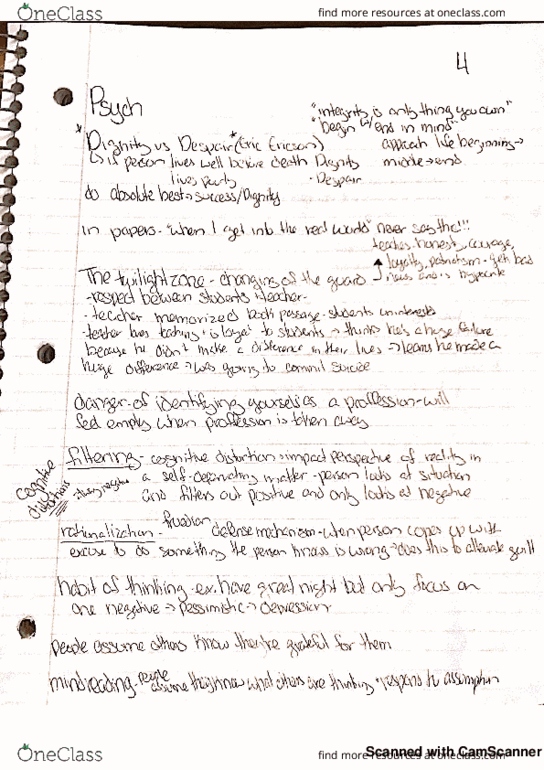 OneClass
find more resources at oneclass.com
4
Psych
"integrity is only thing you own"
"begin w/ end in mind"
*Dignity vs Despair* (Eric Ericson)
approach life beginning→
↳ if person lives well before death Dignity
middle→end
lives poorly · Despair
do absolute best→success/Dignity
in papers- "when I get into the real world" never say this!!!
teaches honest, courage,
loyalty, patriotism - gets bad
news and is hypocrite
The twilight zone - changing of the guard
-respect between students + teacher-
-teacher memorized book passage - students uninterested
-teacher loves teaching + is loyal to students → thinks he's a huge failure
because he didn't make a difference in their lives → learns he made a
huge difference → was going to commit suicide
danger of identifying yourself as a proffession-will
feel empty when proffession is taken away
filtering - cognitive distortion → impact perspective of reality in
a self-deprivating matter - person looks at situation
and filters out positive and only looks at negative
cognitive
distortions
negative
rationalization - fruedian defense mechanism - when person copes up with
excuse to do something the person knows is wrong → does this to alleviate guilt
habit of thinking - ex. have great night but only focus on
one negative → pessimistic → depression
people assume others know they're grateful for them
mindreading - people assume they know what others are thinking + respons to assumption
OneClass
find more resources at oneclass.com
Scanned with CamScanner